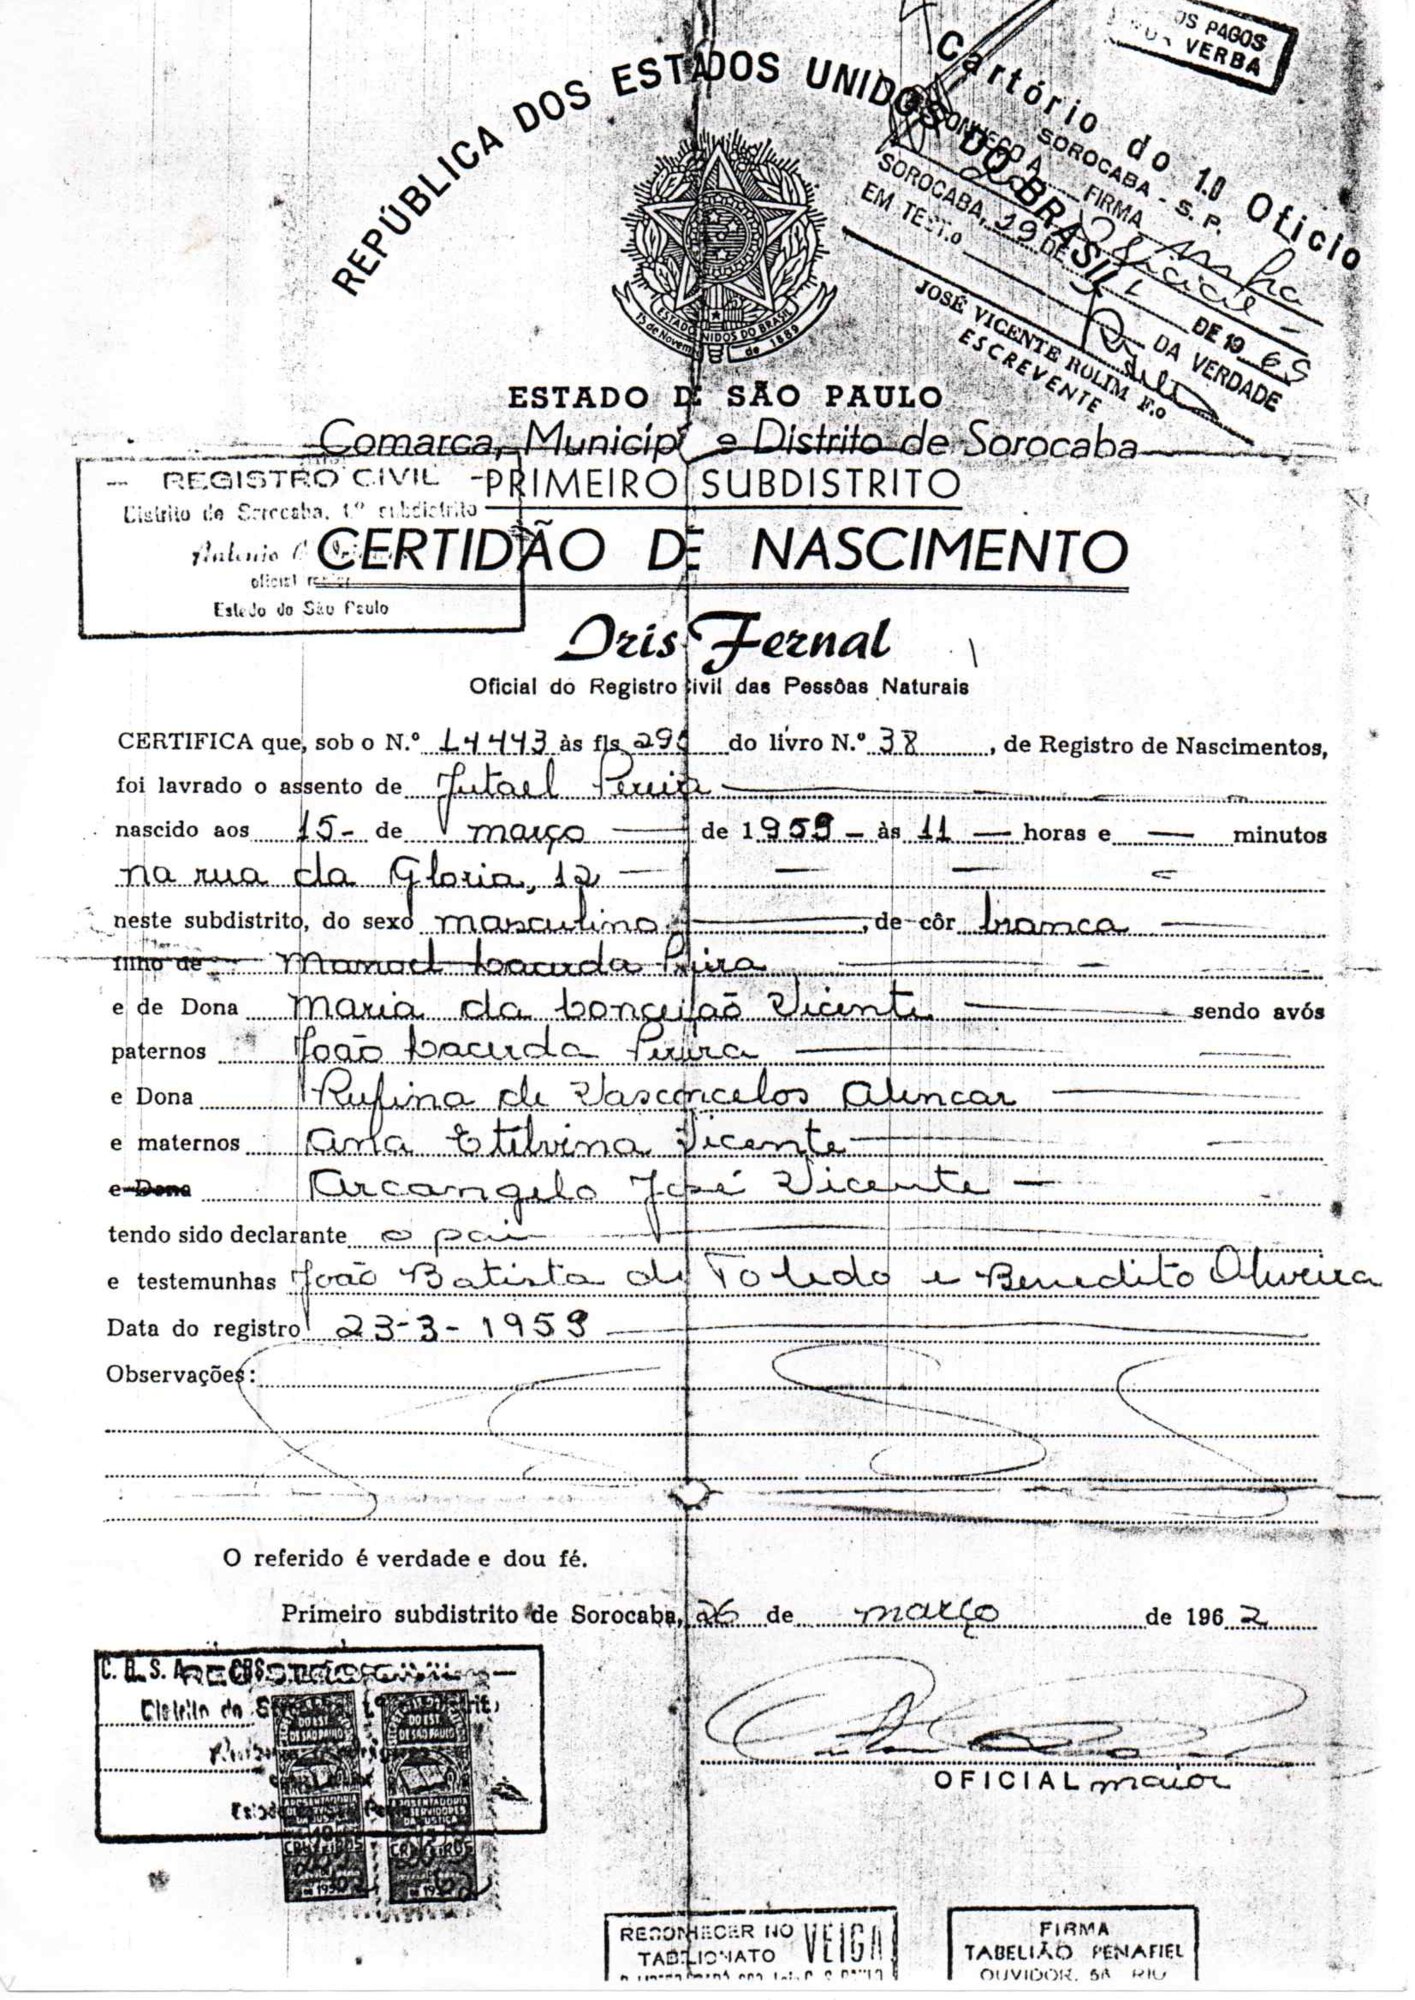 OS PAGOS
VERBA
REPÚBLICA DOS ESTADOS UNIDOS DO BRASIL
Cartório do 1.0 Oficio
SOROCABA - S. P.
A FIRMA
SOROCABA, 19 DE DE 1965
EM TEST.o DA VERDADE
JOSÉ VICENTE ROLIM F.o
ESCREVENTE
ESTADOS UNIDOS DO BRASIL
15 de Novembro de 1889
ESTADO DE SÃO PAULO
Comarca, Municipi e Distrito de Sorocaba
- REGISTRO CIVIL -
PRIMEIRO SUBDISTRITO
Distrito de Sorocaba, 1º subdistrito
Antonio
oficial
Estado de São Paulo
CERTIDÃO DE NASCIMENTO
Iris Fernal
Oficial do Registro Civil das Pessôas Naturais
CERTIFICA que, sob o N.º 14443 às fls 295 do livro N.º 38, de Registro de Nascimentos,
foi lavrado o assento de Jutael Pereira
nascido aos 15 - de março de 1959 - às 11 horas e — minutos
na rua da Gloria, 12
neste subdistrito, do sexo masculino, de côr branca
filho de Manoel Lacerda Pereira
e de Dona Maria da Conceição Vicente sendo avós
paternos João Lacerda Pereira
e Dona Rufina de Vasconcelos Alencar
e maternos Ana Etelvina Vicente
e Dona Arcangelo José Vicente
tendo sido declarante o pai
e testemunhas João Batista de Toledo e Benedito Oliveira
Data do registro 23-3-1959
Observações:
O referido é verdade e dou fé.
Primeiro subdistrito de Sorocaba, 26 de março de 1962
OFICIAL maior
DO EST.
DE SÃO PAULO
APOSENTADORIA
SERVIDORES
DA JUSTIÇA
CRUZEIROS
RECONHECER NO
TABELIONATO VEIGA
FIRMA
TABELIÃO PENAFIEL
OUVIDOR, 56 RIO